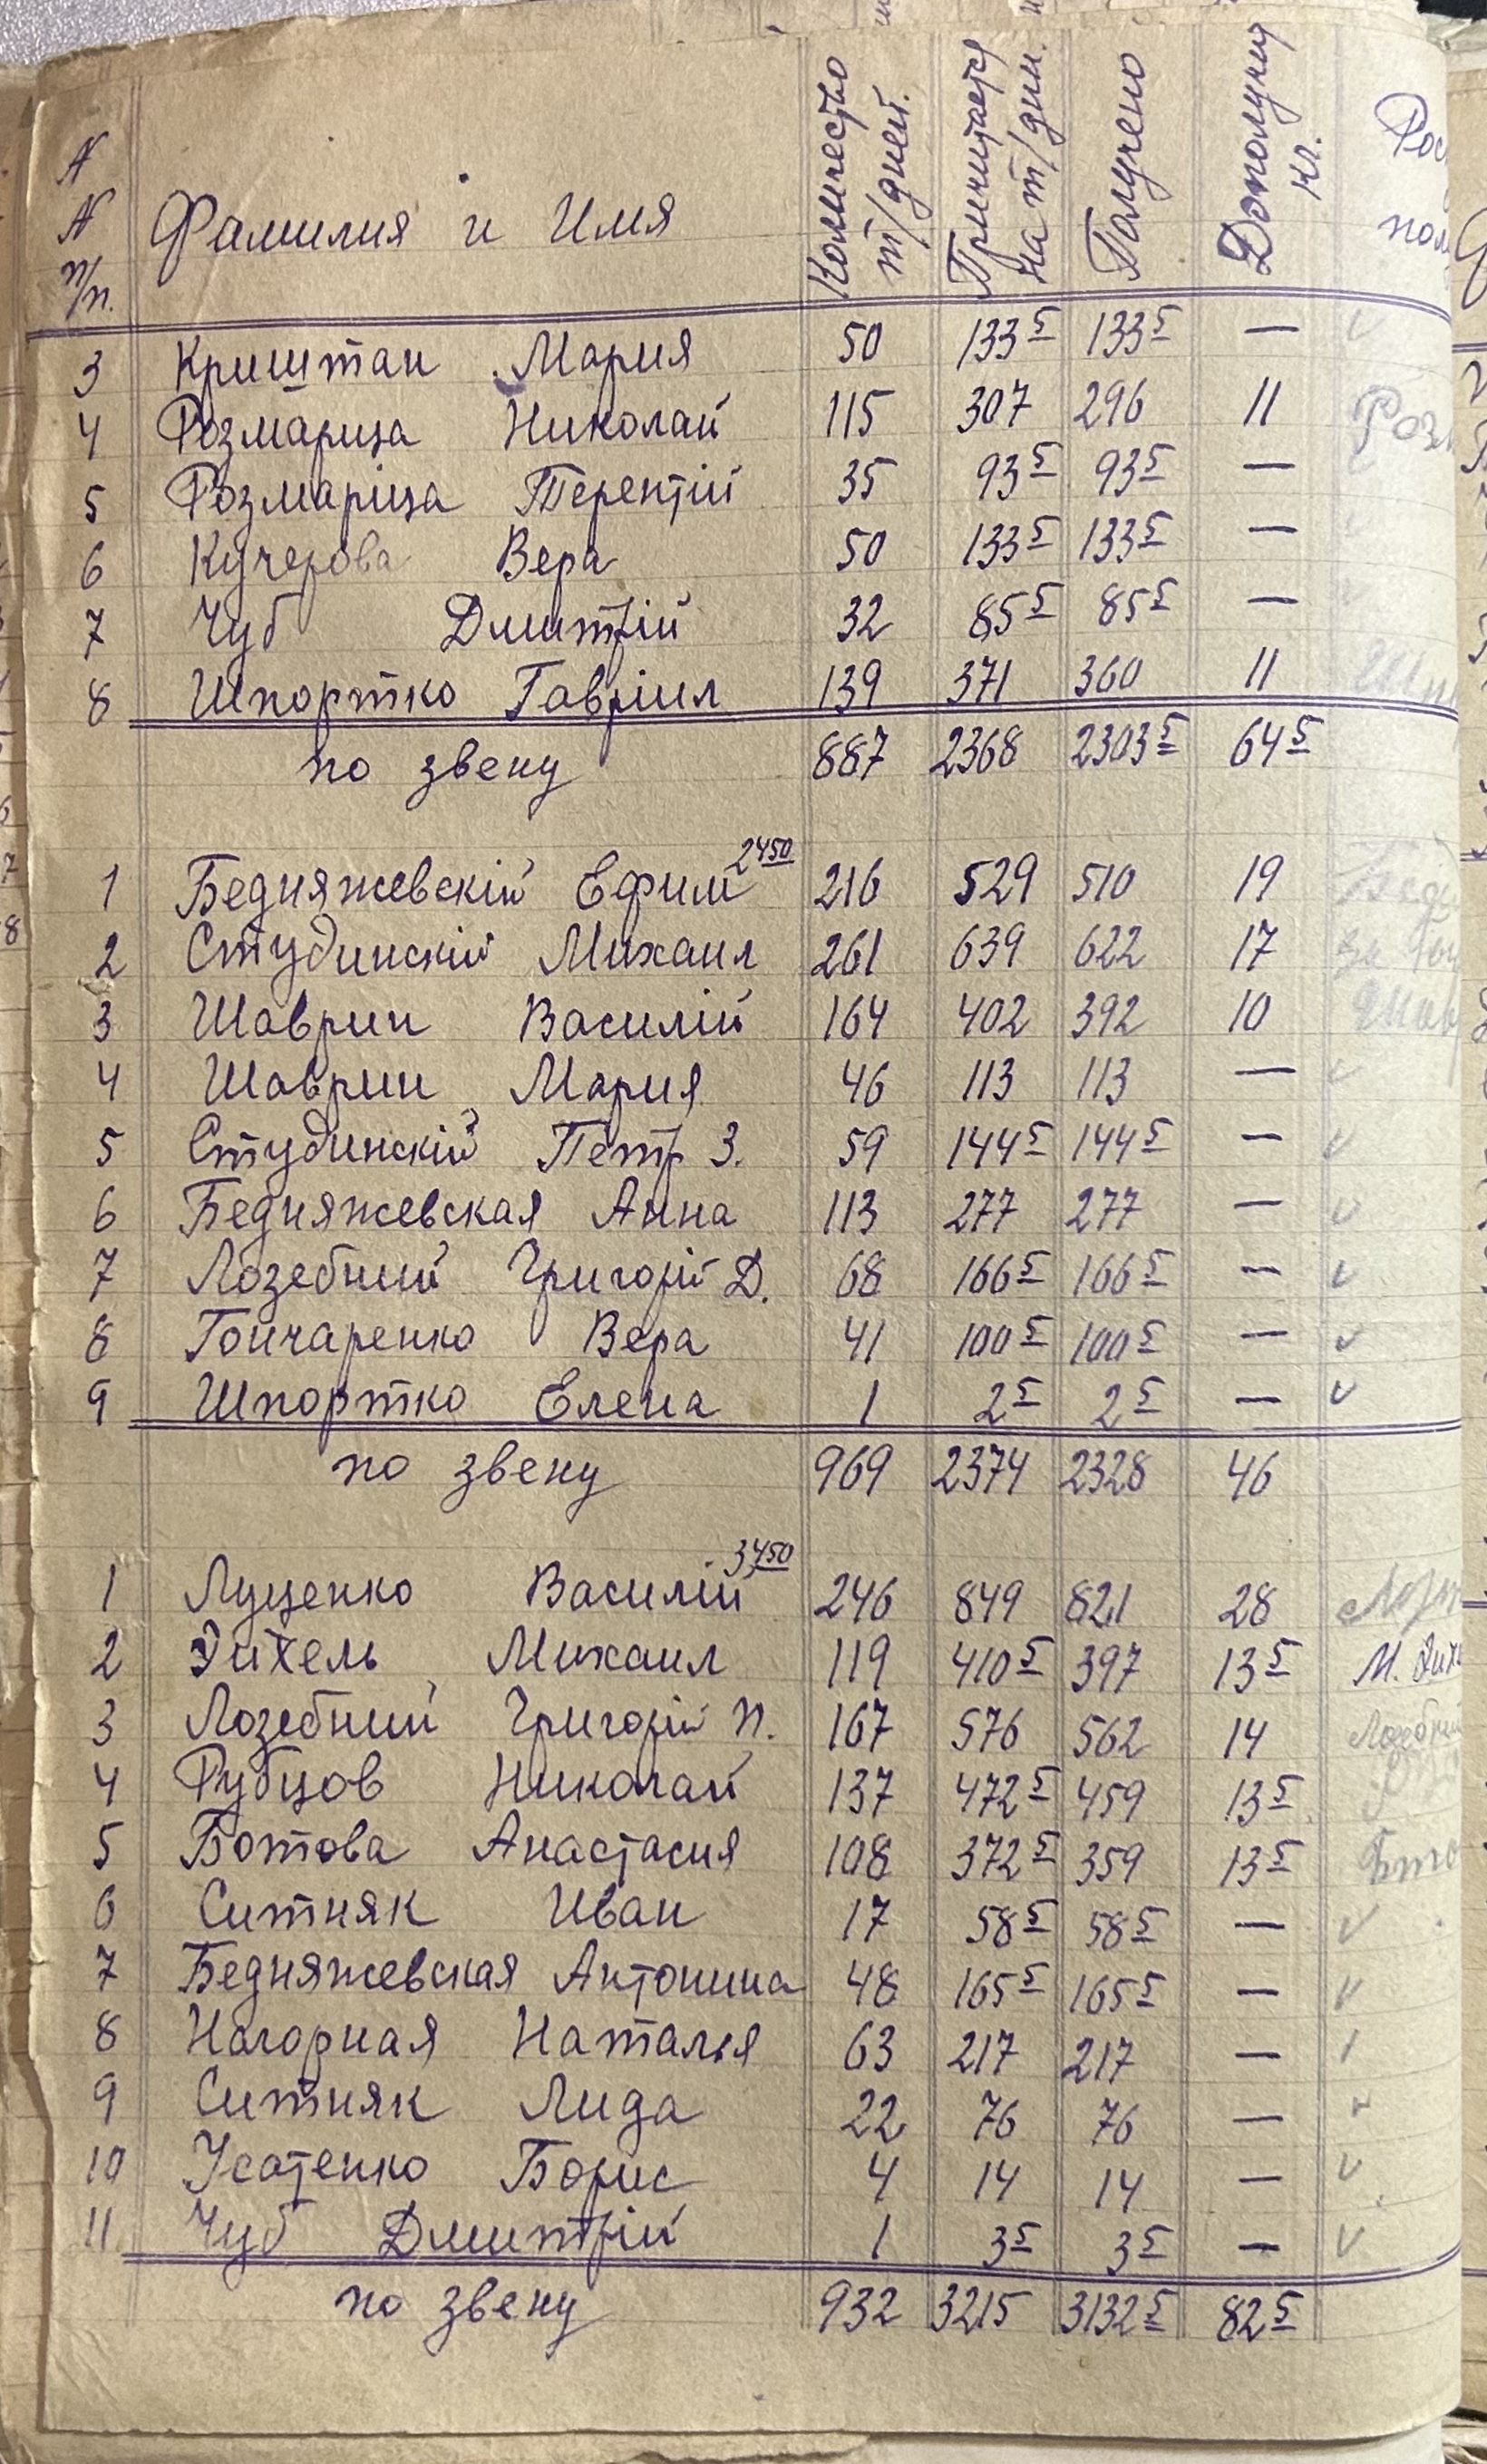 N N п/п. Фамилия и Имя Количество т/дней. Причитается на т/дни. Получено Дополучит кг. Рос пол
3 Криштан Мария 50 133 5 133 5 —
4 Розмарица Николай 115 307 296 11 Роз
5 Розмаріца Терентій 35 93 5 93 5 —
6 Кучерова Вера 50 133 5 133 5 —
7 Чуб Дмитрій 32 85 5 85 5 —
8 Шпортко Гавріил 139 371 360 11
по звену 887 2368 2303 5 64 5
2450
1 Бедняжевскій Ефим 216 529 510 19 Бедн
2 Студинскій Михаил 261 639 622 17 За
3 Шаврин Василій 164 402 392 10 Шав
4 Шаврин Мария 46 113 113 — ✓
5 Студинскій Петр З. 59 144 5 144 5 — ✓
6 Бедняжевская Анна 113 277 277 — ✓
7 Лозебний Григорій Д. 68 166 5 166 5 — ✓
8 Гончаренко Вера 41 100 5 100 5 — ✓
9 Шпортко Елена 1 2 5 2 5 — ✓
по звену 969 2374 2328 46
3450
1 Луценко Василій 246 849 821 28
2 Эйхель Михаил 119 410 5 397 13 5 М. Эйх
3 Лозебний Григорій П. 167 576 562 14 Лозебний
4 Рубцов Николай 137 472 5 459 13 5
5 Ботова Анастасия 108 372 5 359 13 5 Бото
6 Ситняк Иван 17 58 5 58 5 — ✓
7 Бедняжевская Антонина 48 165 5 165 5 — ✓
8 Нагорная Наталья 63 217 217 —
9 Ситняк Лида 22 76 76 — ✓
10 Усатенко Борис 4 14 14 — ✓
11 Чуб Дмитрій 1 3 5 3 5 — ✓
по звену 932 3215 3132 5 82 5